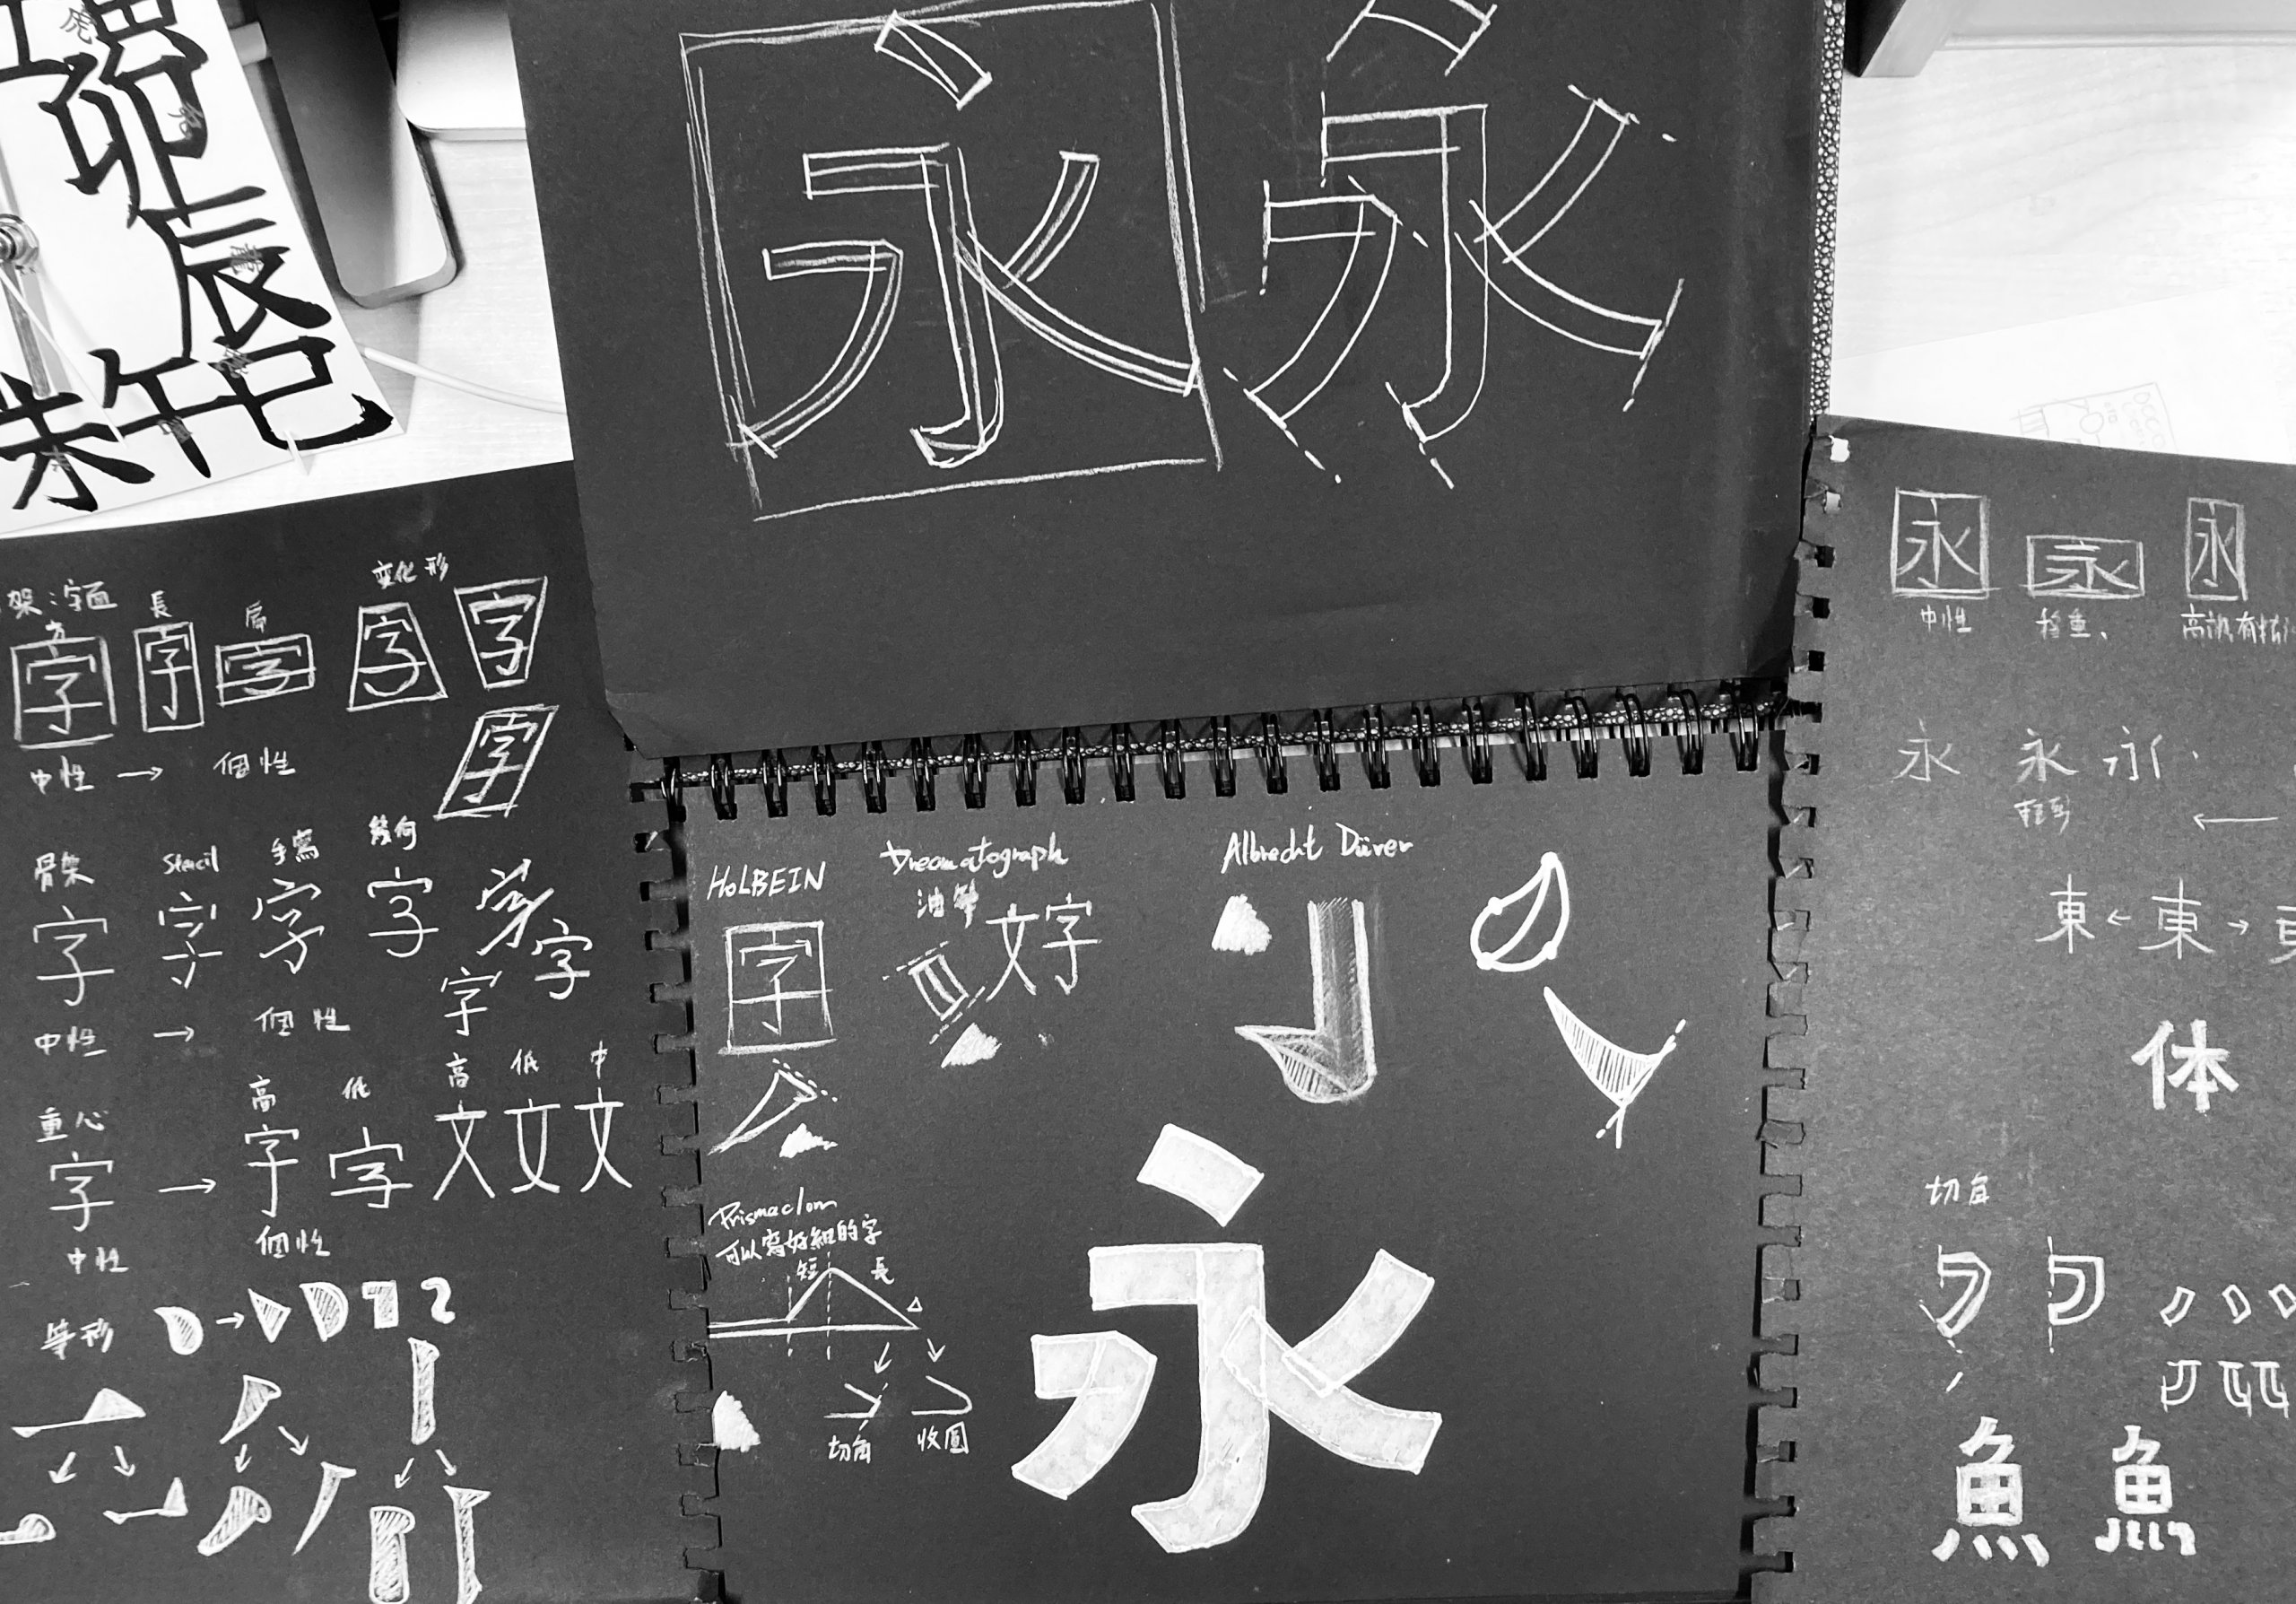 卯
辰
未午巳
永永
架:字面
長
扁
变化形
字字字字字
字
中性→個性
骨架
Stencil
手寫
幾何
字字字字字字
字
中性→個性
重心
高低
高低中
字→字字文文文
中性
個性
等形
HOLBEIN
字
油
文字
Albrecht Dürer
可以寫好細的字
短
長
切角
收圓
永
永永永
中性
穩重、
永永永
東←東→
体
切角
魚魚